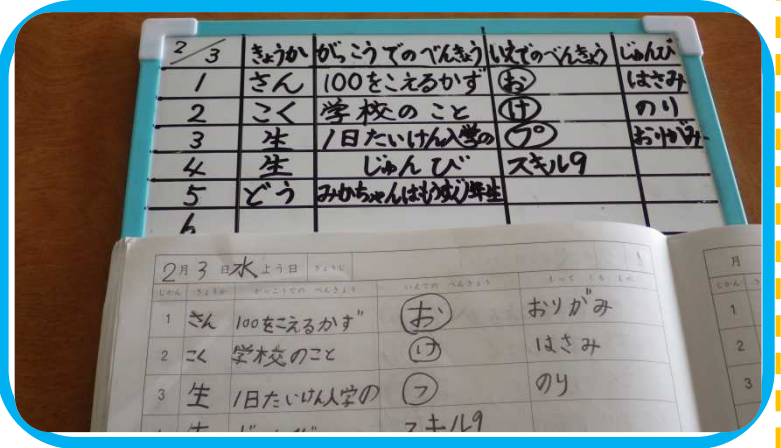 2/3 きょうか がっこうでのべんきょう いえでのべんきょう じゅんび
1 さん 100をこえるかず お はさみ
2 こく 学校のこと け のり
3 生 1日たいけん入学の プ おりがみ
4 生 じゅんび スキル9
5 どう みかちゃんはもうすぐ1年生
6
2月3日水よう日
じかん きょうか がっこうでの べんきょう いえでの べんきょう もって くる もの
1 さん 100をこえるかず お おりがみ
2 こく 学校のこと け はさみ
3 生 1日たいけん入学の プ のり
スキル9
月
1
2
3